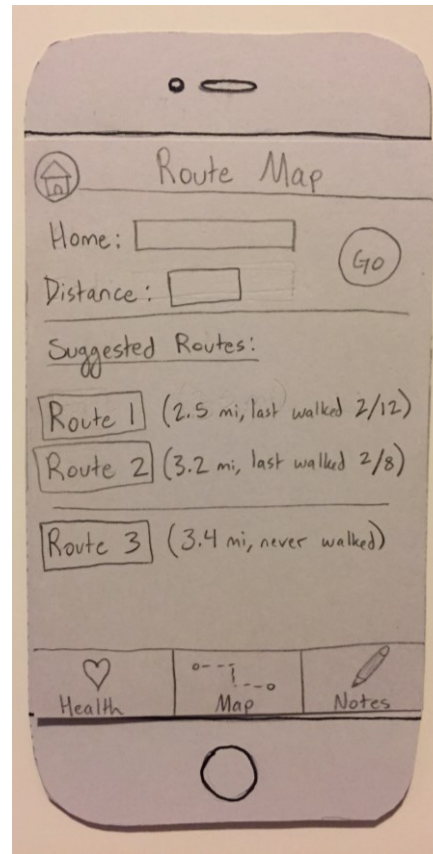 Route Map
Home:
Go
Distance:
Suggested Routes:
Route 1 (2.5 mi, last walked 2/12)
Route 2 (3.2 mi, last walked 2/8)
Route 3 (3.4 mi, never walked)
Health Map Notes